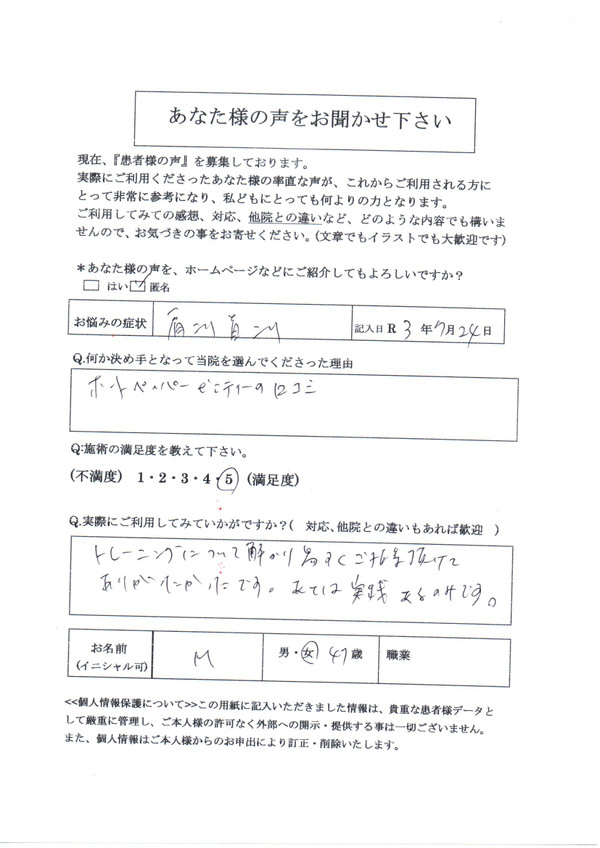 あなた様の声をお聞かせ下さい
現在、『患者様の声』を募集しております。
実際にご利用くださったあなた様の率直な声が、これからご利用される方に
とって非常に参考になり、私どもにとっても何よりの力となります。
ご利用してみての感想、対応、他院との違いなど、どのような内容でも構いま
せんので、お気づきの事をお寄せください。(文章でもイラストでも大歓迎です)
＊あなた様の声を、ホームページなどにご紹介してもよろしいですか？
□ はい ☑ 匿名
お悩みの症状 肩こり 首こり 記入日 R 3 年 7月 24 日
Q.何か決め手となって当院を選んでくださった理由
ホットペッパービューティーの口コミ
Q:施術の満足度を教えて下さい。
(不満度) 1・2・3・4・5 (満足度)
Q.実際にご利用してみていかがですか？( 対応、他院との違いもあれば歓迎 )
トレーニングについて解かり易くご指導頂けて
ありがたかったです。あとは実践あるのみです。
お名前 M 男・女 47 歳 職業
(イニシャル可)
<<個人情報保護について>>この用紙に記入いただきました情報は、貴重な患者様データと
して厳重に管理し、ご本人様の許可なく外部への開示・提供する事は一切ございません。
また、個人情報はご本人様からのお申出により訂正・削除いたします。